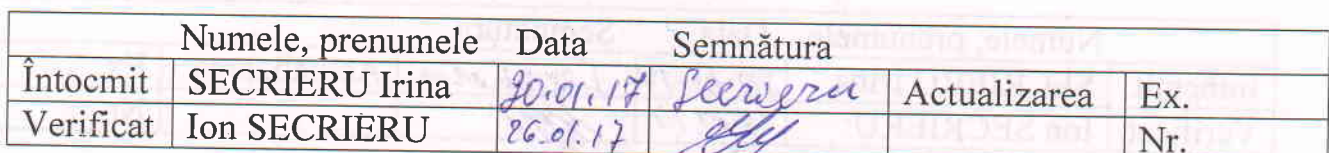 Numele, prenumele Data Semnătura
Întocmit SECRIERU Irina 20.01.17 Secrieru Actualizarea Ex.
Verificat Ion SECRIERU 26.01.17 Nr.